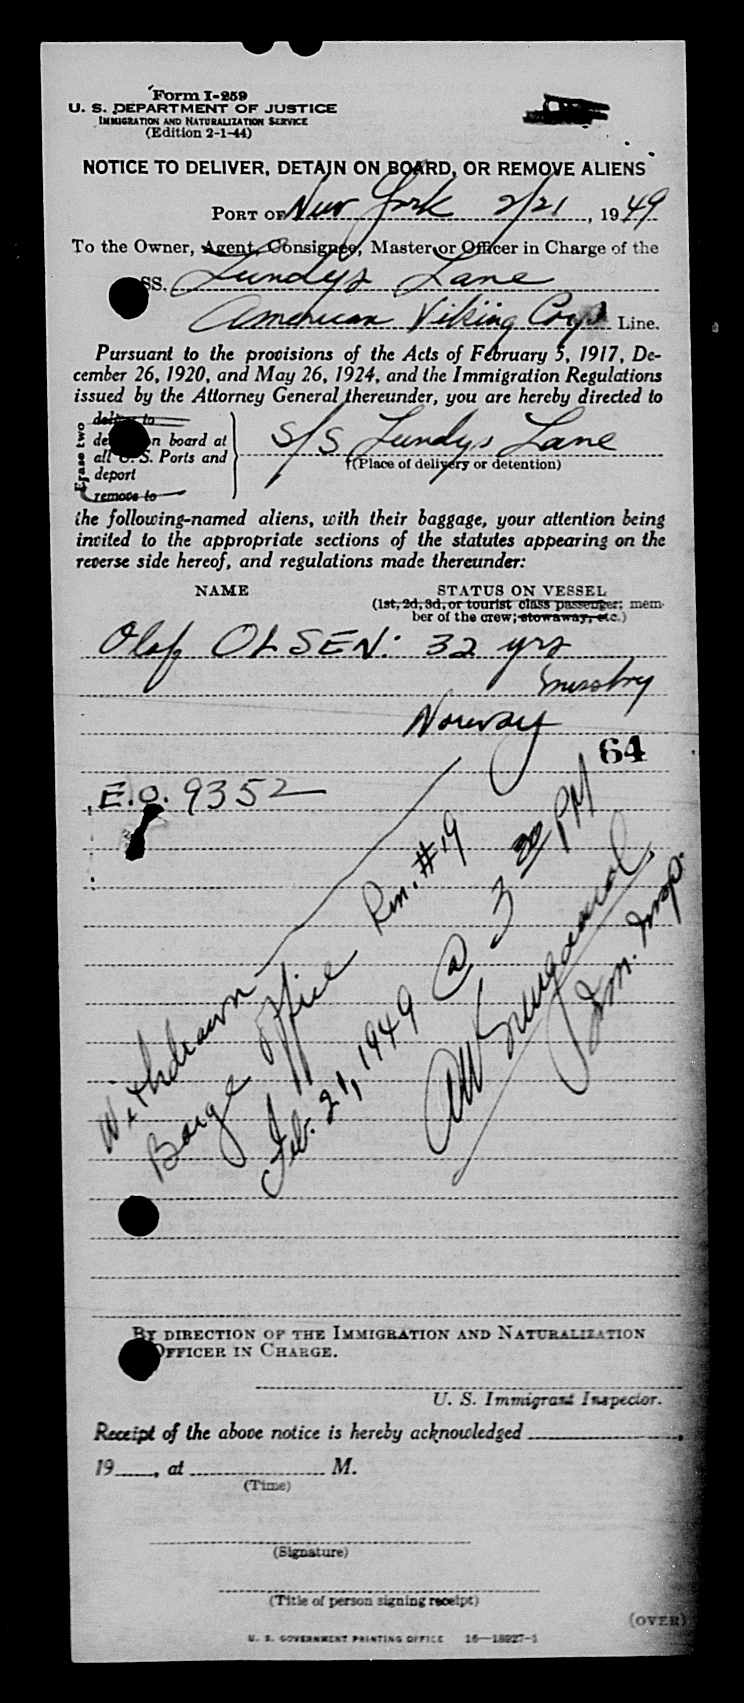 Form I-259
U. S. DEPARTMENT OF JUSTICE
IMMIGRATION AND NATURALIZATION SERVICE
(Edition 2-1-44)
NOTICE TO DELIVER, DETAIN ON BOARD, OR REMOVE ALIENS
PORT OF New York 2/21, 1949
To the Owner, Agent, Consignee, Master or Officer in Charge of the
SS. Lundys Lane
American Viking Corp Line.
Pursuant to the provisions of the Acts of February 5, 1917, De-
cember 26, 1920, and May 26, 1924, and the Immigration Regulations
issued by the Attorney General thereunder, you are hereby directed to
Erase two
deliver to
de n board at
all U. S. Ports and
deport
remove to
S/S Lundys Lane
(Place of delivery or detention)
the following-named aliens, with their baggage, your attention being
invited to the appropriate sections of the statutes appearing on the
reverse side hereof, and regulations made thereunder:
NAME STATUS ON VESSEL
(1st, 2d, 3d, or tourist class passenger; mem-
ber of the crew; stowaway, etc.)
Olaf OLSEN: 32 yrs
Norway
64
E.O. 9352
Withdrawn
Barge Office Rm. #19
Feb. 21, 1949 @ 3 PM
Im. Insp.
BY DIRECTION OF THE IMMIGRATION AND NATURALIZATION
OFFICER IN CHARGE.
U. S. Immigrant Inspector.
Receipt of the above notice is hereby acknowledged
19, at M.
(Time)
(Signature)
(Title of person signing receipt)
(OVER)
U. S. GOVERNMENT PRINTING OFFICE 16—18927-1